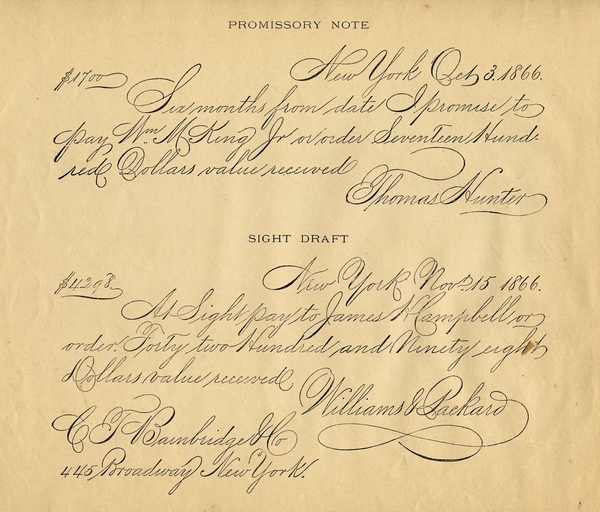 PROMISSORY NOTE
$1700 New York Oct 3. 1866.
Six months from date I promise to
pay Wm. M King Jr or order Seventeen Hund-
red Dollars value received
Thomas Hunter
SIGHT DRAFT
$4298 New York Nov. 15 1866.
At Sight pay to James H Campbell or
order Forty two Hundred and Ninety eight
Dollars value received
Williams & Packard
C T Bainbridge & Co
445 Broadway New York.